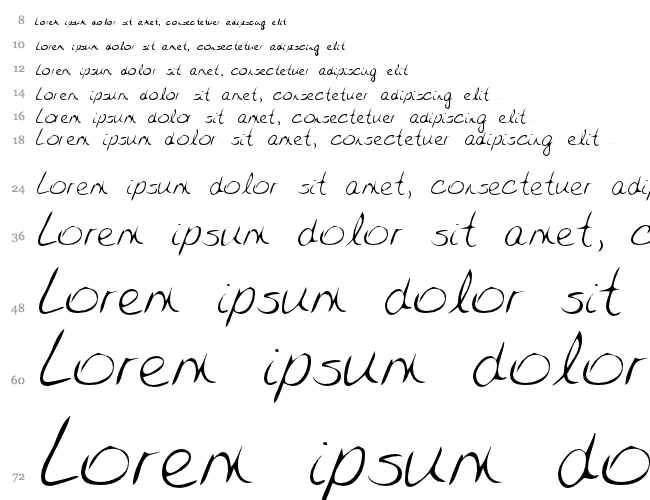 8 Lorem ipsum dolor sit amet, consectetuer adipiscing elit
10 Lorem ipsum dolor sit amet, consectetuer adipiscing elit
12 Lorem ipsum dolor sit amet, consectetuer adipiscing elit
14 Lorem ipsum dolor sit amet, consectetuer adipiscing elit...
16 Lorem ipsum dolor sit amet, consectetuer adipiscing elit...
18 Lorem ipsum dolor sit amet, consectetuer adipiscing elit...
24 Lorem ipsum dolor sit amet, consectetuer adip
36 Lorem ipsum dolor sit amet, c
48 Lorem ipsum dolor sit
60 Lorem ipsum dolor
72 Lorem ipsum do